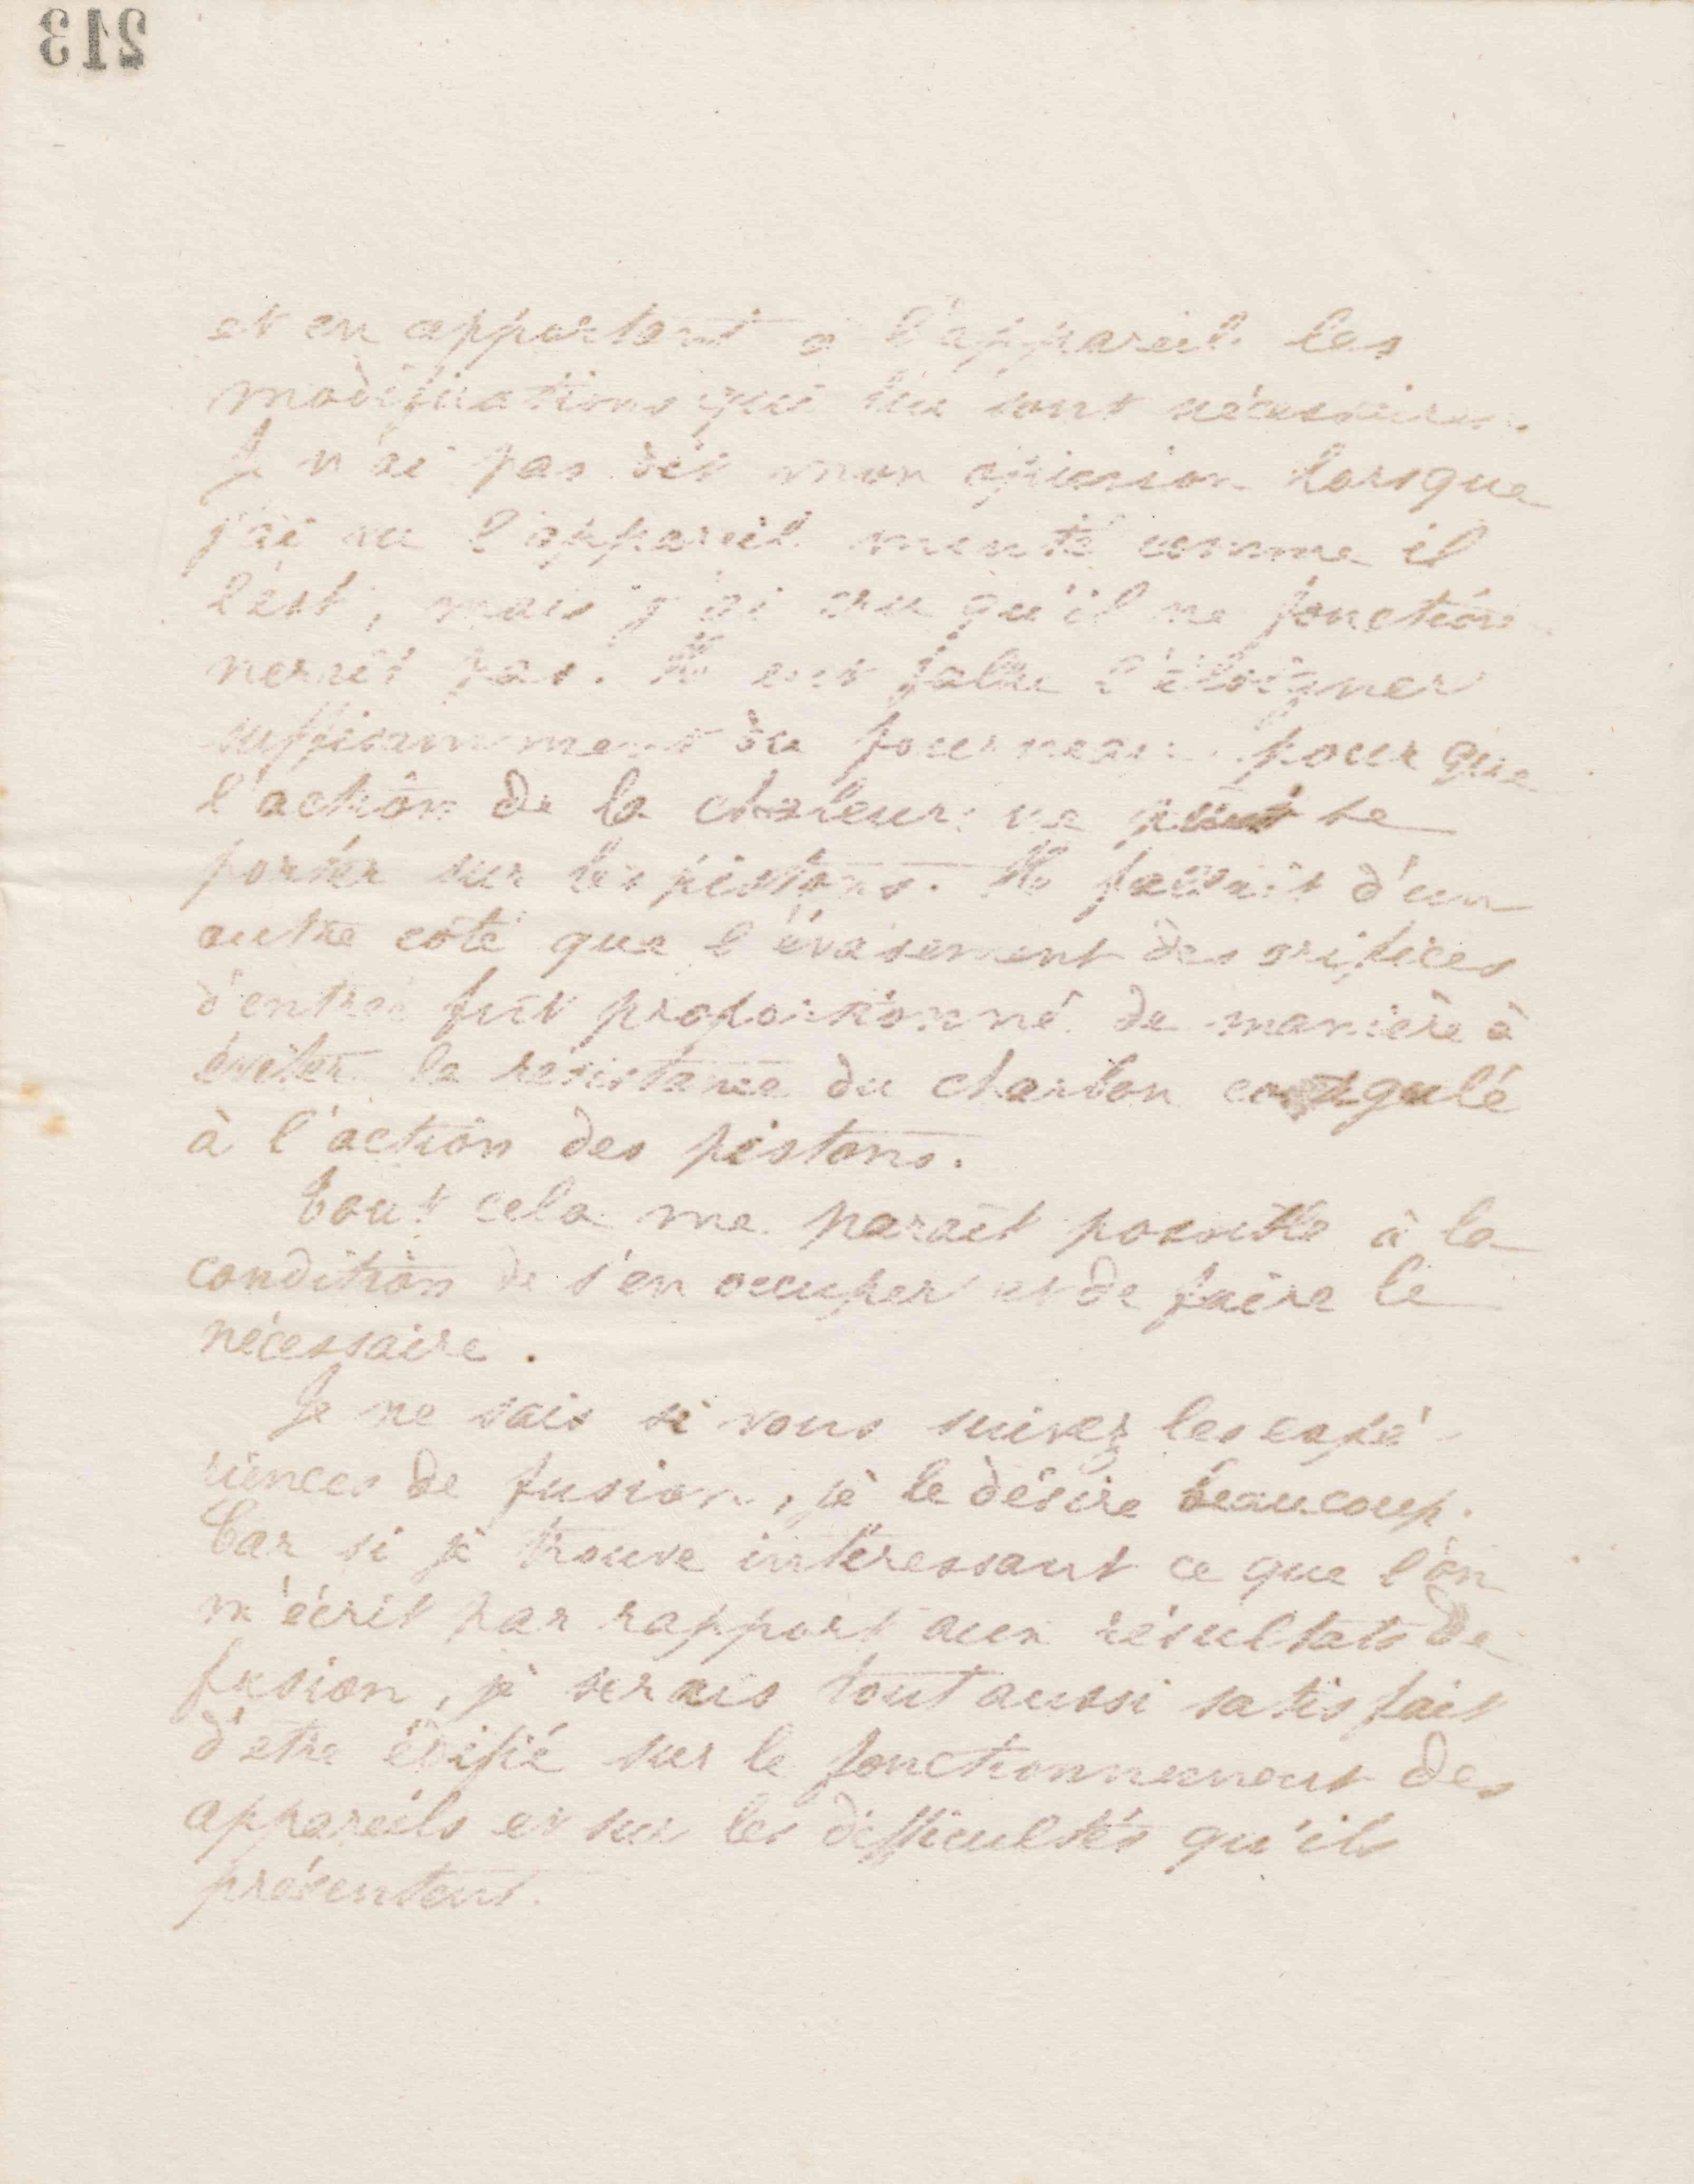 213
et en apportant à l'appareil les
modifications qui lui sont nécessaires.
Je n'ai pas dit mon opinion lorsque
j'ai vu l'appareil monté comme il
l'est, mais j'ai cru qu'il ne fonction
nerait pas. Il eut fallu l'éloigner
suffisamment du fourneau pour que
l'action de la chaleur ne put se
porter sur les pistons. Il fallait d'un
autre coté que l'évasement des orifices
d'entrée fut proportionné de manière à
éviter la résistance du charbon coagulé
à l'action des pistons.
Tout cela me parait possible à la
condition de s'en occuper et de faire le
nécessaire.
Je ne sais si vous suivez les expé
riences de fusion, je le désire beaucoup.
Car si je trouve intéressant ce que l'on
m'écrit par rapport aux résultats de
fusion, je serais tout aussi satisfait
d'etre édifié sur le fonctionnement des
appareils et sur les difficultés qu'ils
présentent.